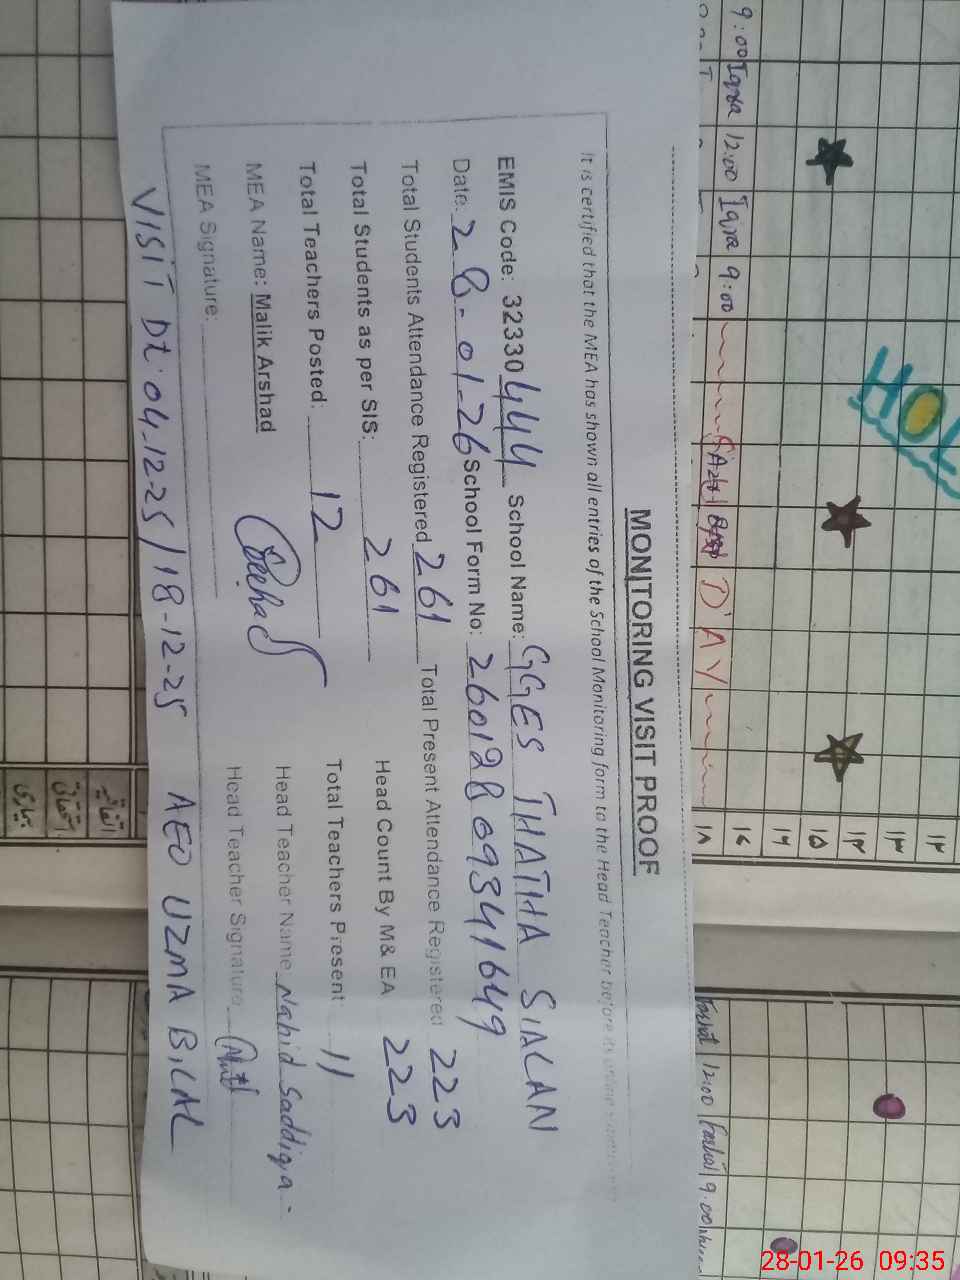 MONITORING VISIT PROOF
It is certified that the MEA has shown all entries of the School Monitoring form to the Head Teacher before its
EMIS Code: 32330444 School Name: GGES THATHA SIALAN
Date: 28-01-26 School Form No: 26012809341649
Total Students Attendance Registered 261 Total Present Attendance Registered 223
Total Students as per SIS: 261 Head Count By M& EA 223
Total Teachers Posted: 12 Total Teachers Present 11
MEA Name: Malik Arshad Head Teacher Name Nahid Saddiqa
MEA Signature: Head Teacher Signature
VISIT Dt: 04-12-25 / 18-12-25 AEO UZMA BILAL
9:00 Iqra 12:00 Iqra 9:00
D'AY
HOL
اتفاقیہ
استحقاقی
بیماری
۱۶
۱۵
۱۴
۱۳
۱۲
Farhat 12:00 Farhat 9:00
28-01-26 09:35